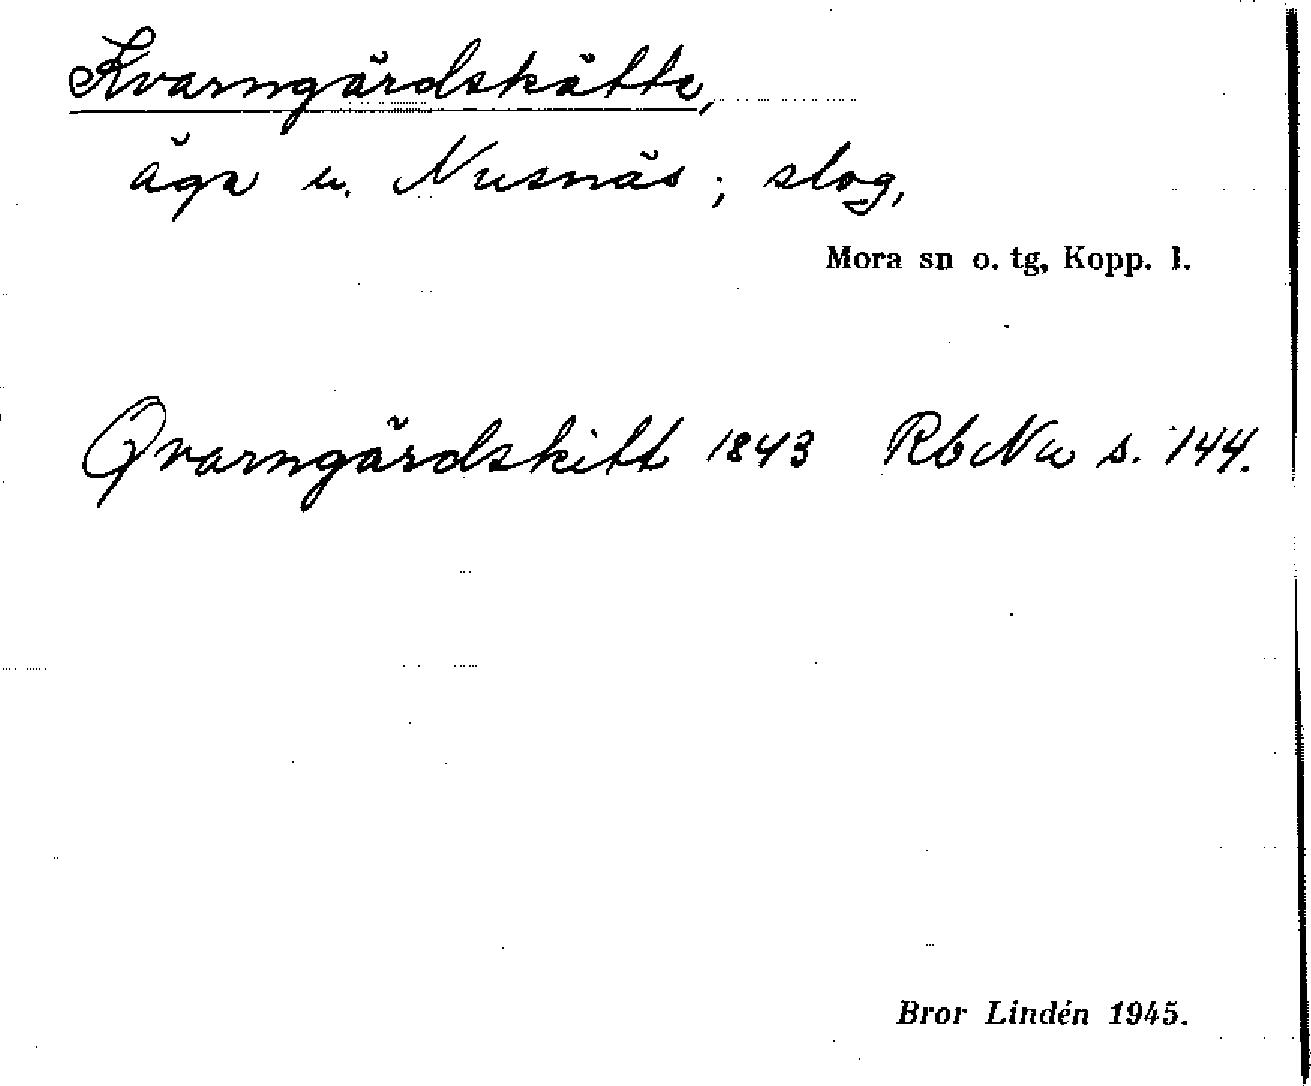 Kvarngärdskätte,
äga u. Nusnäs; slog,
Mora sn o. tg, Kopp. l.
Qvarngärdskitt 1843 RbNu s. 144.
Bror Lindén 1945.